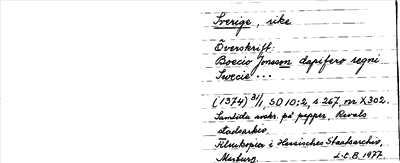 Sverige, rike
Överskrift:
Boecio Jonsson dapifero regni
Swecie ...
(1374) 31/1, SD 10:2, s. 267, nr X302.
Samtida avskr. på papper, Revals
stadsarkiv,
Filmkopior i Hessisches Staatsarchiv,
Marburg. L-t. B. 1977